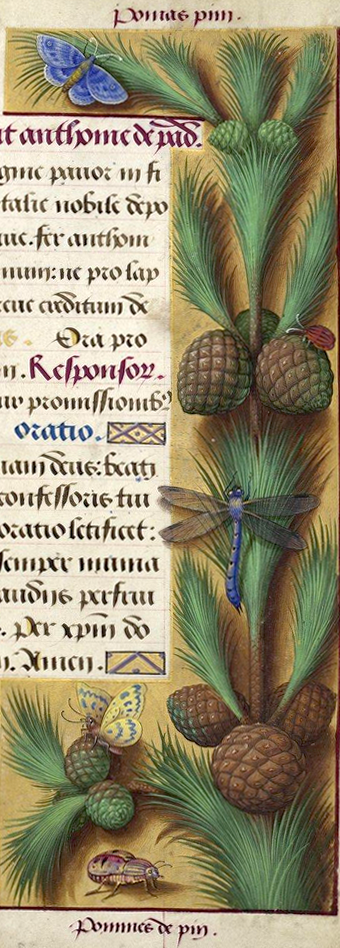 Pomus pini.
it anthonie de pad.
gnie pavor in fi
talie nobile depo
uie. fer anthoni
mum: ne pro lap
creditum de
Ora pro
n. Responsor.
promissionib9
oratio.
iam deus: beati
confessoris tui
oratio letificet:
semper munia
audiis perfrui
. Per xpm do
n. Amen.
Pommes de pin.